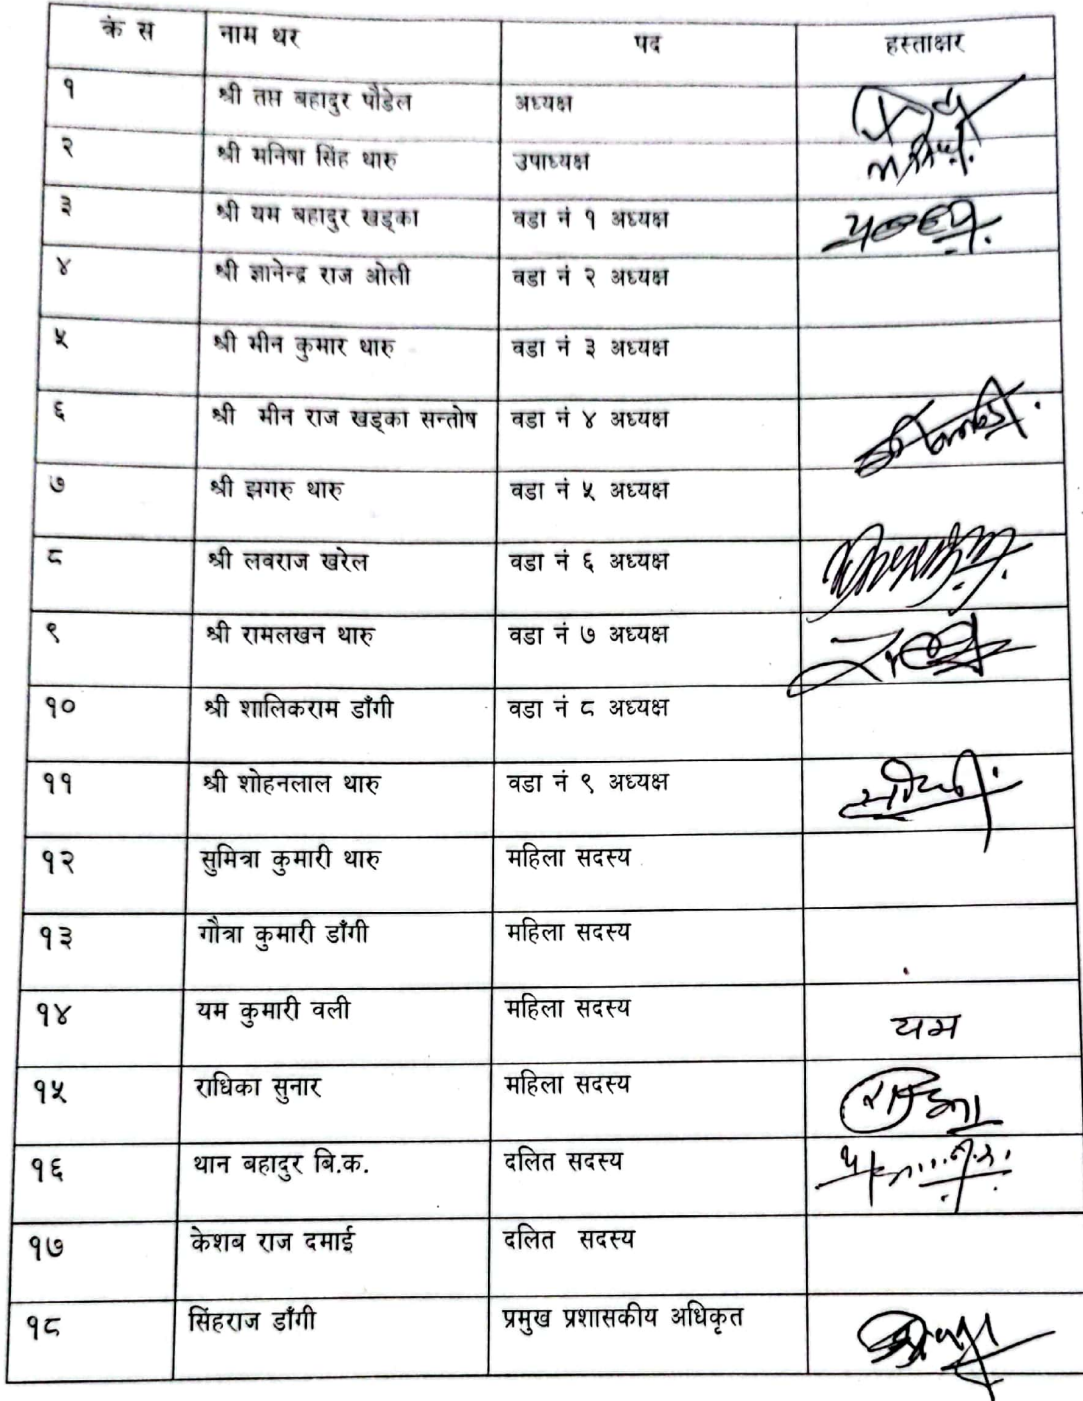 क्रं स नाम थर पद हस्ताक्षर
१ श्री तप्त बहादुर पौडेल अध्यक्ष
२ श्री मनिषा सिंह थारु उपाध्यक्ष
३ श्री यम बहादुर खड्का वडा नं १ अध्यक्ष
४ श्री ज्ञानेन्द्र राज ओली वडा नं २ अध्यक्ष
५ श्री मीन कुमार थारु वडा नं ३ अध्यक्ष
६ श्री मीन राज खड्का सन्तोष वडा नं ४ अध्यक्ष
७ श्री झगरु थारु वडा नं ५ अध्यक्ष
८ श्री लवराज खरेल वडा नं ६ अध्यक्ष
९ श्री रामलखन थारु वडा नं ७ अध्यक्ष
१० श्री शालिकराम डाँगी वडा नं ८ अध्यक्ष
११ श्री शोहनलाल थारु वडा नं ९ अध्यक्ष
१२ सुमित्रा कुमारी थारु महिला सदस्य
१३ गौत्रा कुमारी डाँगी महिला सदस्य
१४ यम कुमारी वली महिला सदस्य यम
१५ राधिका सुनार महिला सदस्य
१६ थान बहादुर बि.क. दलित सदस्य
१७ केशब राज दमाई दलित सदस्य
१८ सिंहराज डाँगी प्रमुख प्रशासकीय अधिकृत